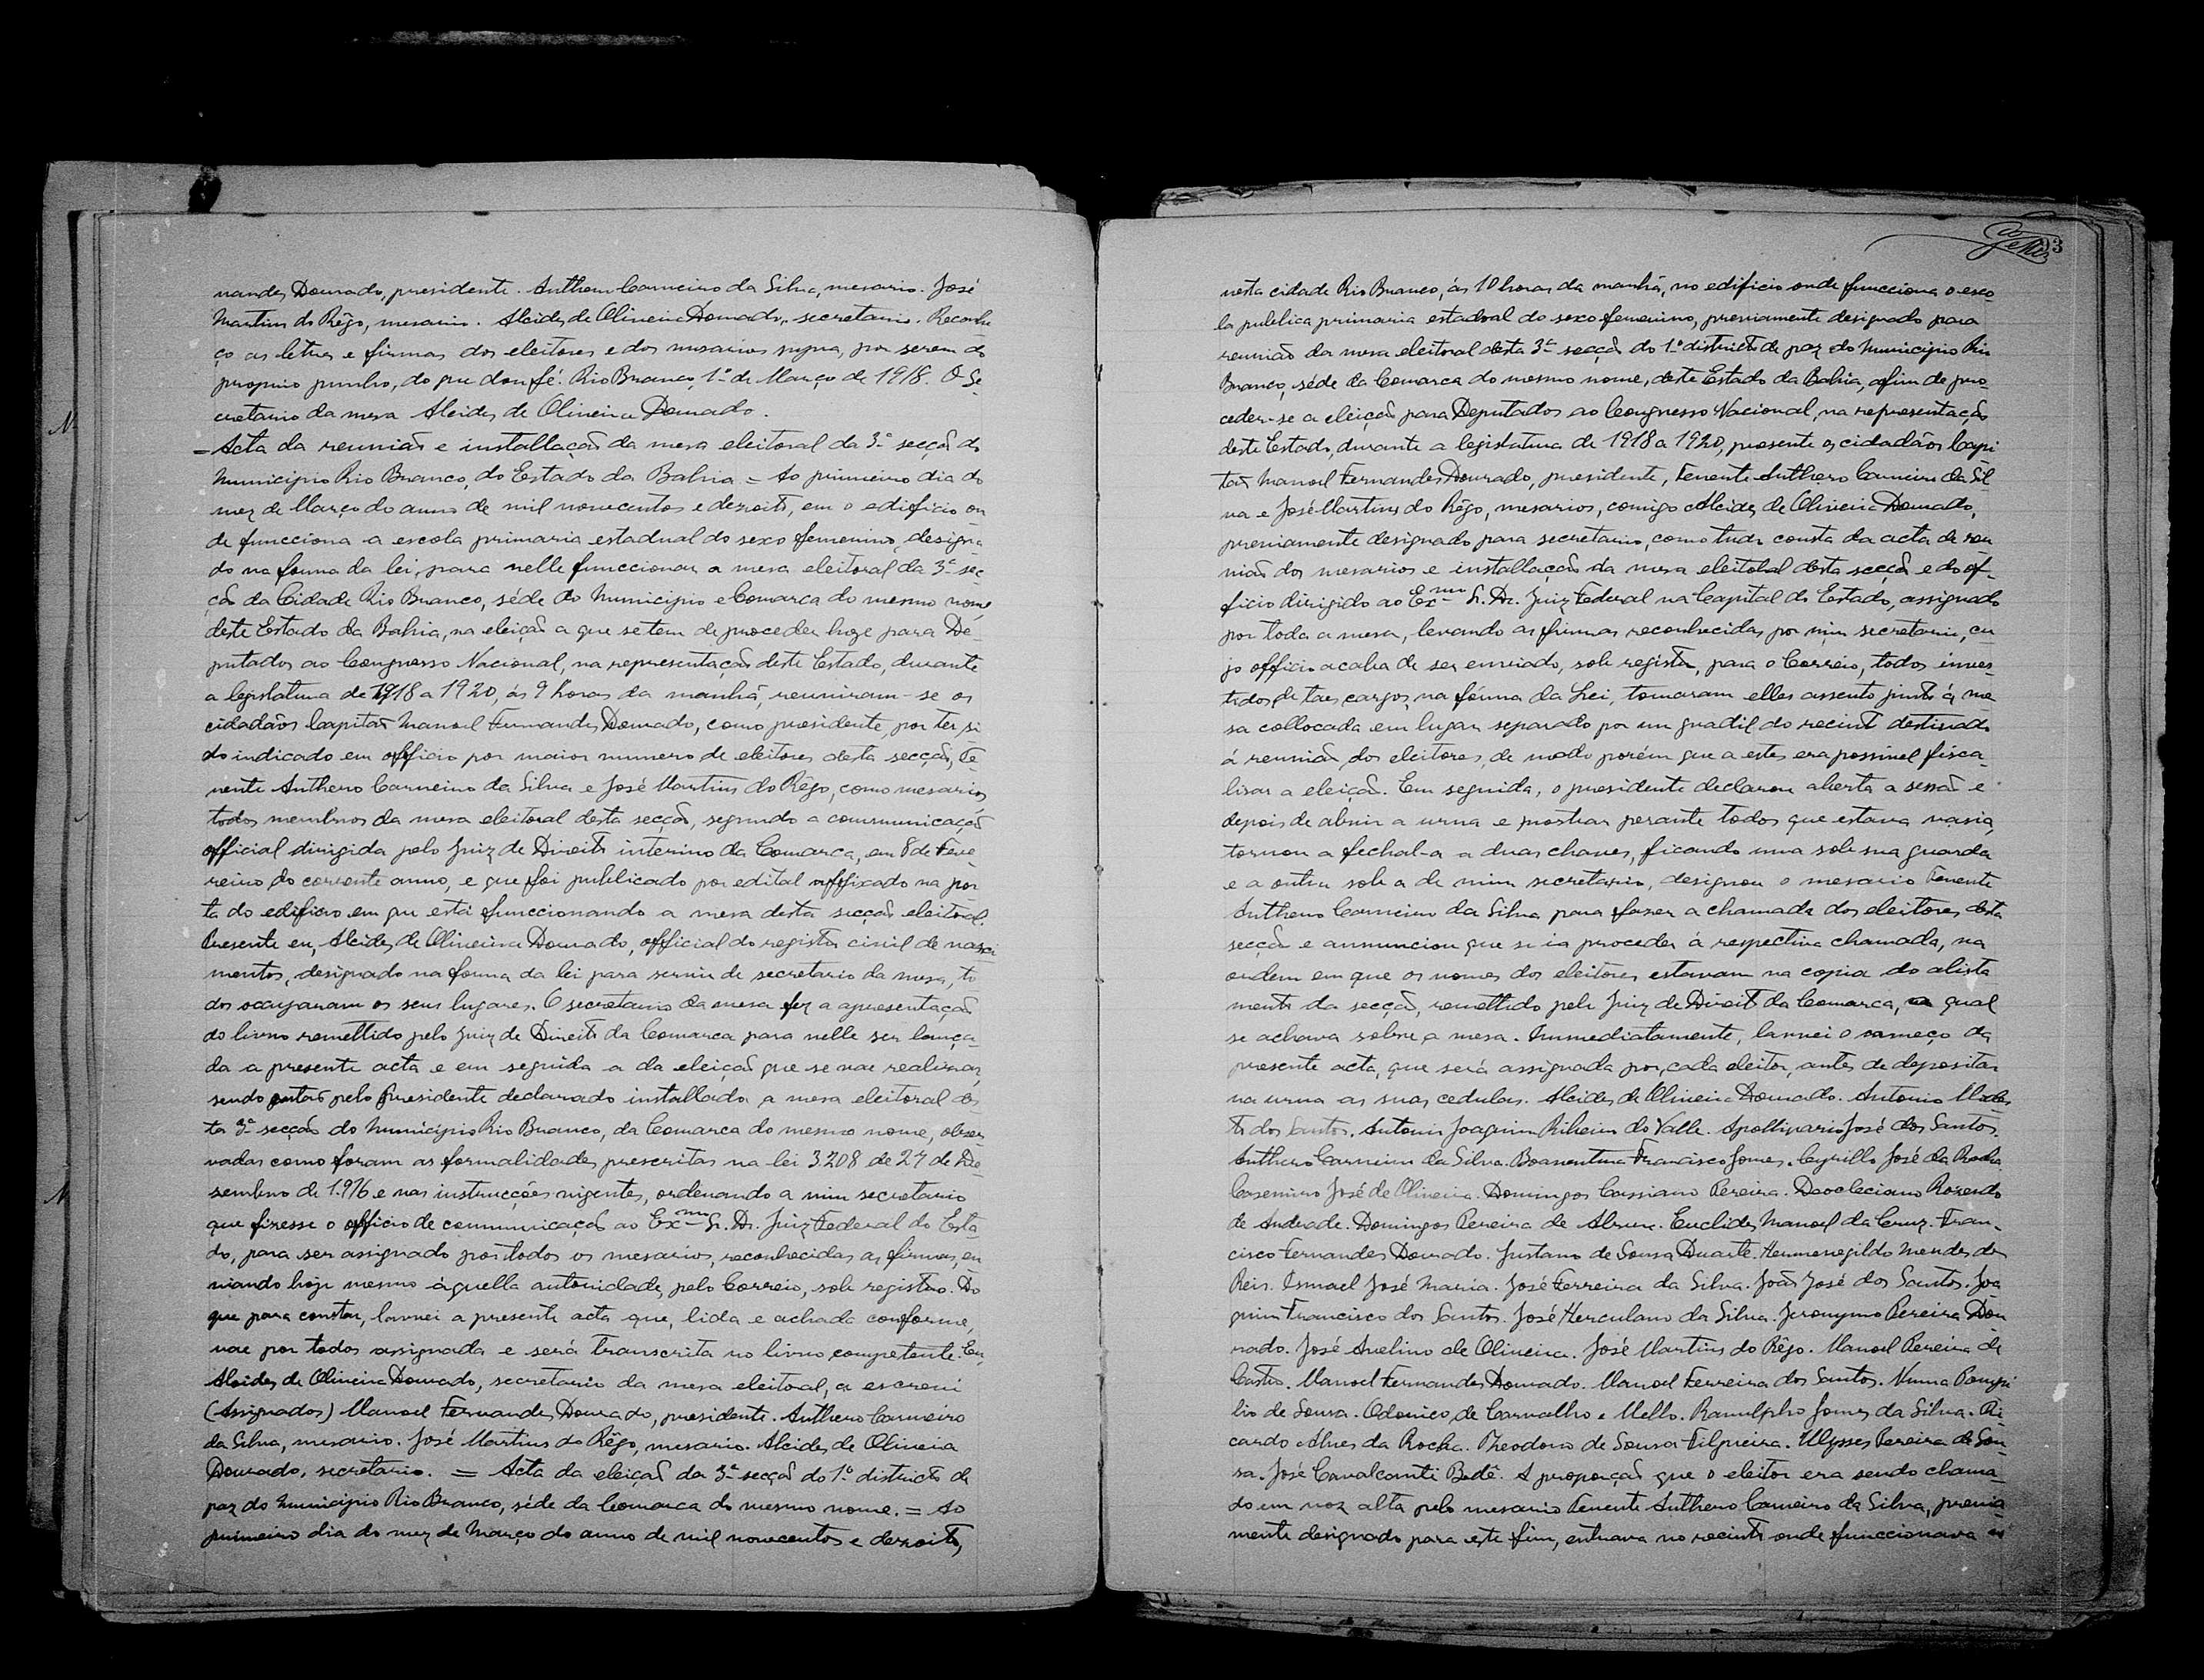 nandes Dourado, presidente. Anthero Carneiro da Silva, mesario. José
Martins do Rêgo, mesario. Alcides de Oliveira Dourado, secretario. Reconhe
ço as letras e firmas dos eleitores e dos mesarios supra, por serem do
proprio punho, do que dou fé. Rio Branco, 1º de Março de 1918. O Se
cretario da mesa Alcides de Oliveira Dourado.
= Acta da reunião e installação da mesa eleitoral da 3ª secção do
Municipio Rio Branco, do Estado da Bahia = Ao primeiro dia do
mez de Março do anno de mil novecentos e dezoito, em o edificio on
de funcciona a escola primaria estadual do sexo femenino, designa
do na forma da lei, para nelle funccionar a mesa eleitoral da 3ª sec
ção da Cidade Rio Branco, séde do Municipio e Comarca do mesmo nome,
deste Estado da Bahia, na eleição a que se tem de proceder hoje para De
putados ao Congresso Nacional, na representação deste Estado, durante
a legislatura de 1918 a 1920, ás 9 horas da manhã, reuniram-se os
cidadãos Capitão Manoel Fernandes Dourado, como presidente, por ter si
do indicado em officio por maior numero de eleitores desta secção, Te
nente Anthero Carneiro da Silva e José Martins do Rêgo, como mesarios
todos membros da mesa eleitoral desta secção, segundo a communicação
official dirigida pelo Juiz de Direito interino da Comarca, em 8 de Feve
reiro do corrente anno, e que foi publicado por edital affixado na por
ta do edificio em que está funccionando a mesa desta secção eleitoral.
Presente eu, Alcides de Oliveira Dourado, official do registro civil de nasci
mentos, designado na forma da lei para servir de secretario da mesa, to
dos occuparam os seus lugares. O secretario da mesa fez a apresentação
do livro remettido pelo Juiz de Direito da Comarca para nelle ser lança
da a presente acta e em seguida a da eleição que se vae realisar,
sendo então pelo Presidente declarado installada a mesa eleitoral des
ta 3ª secção do Municipio Rio Branco, da Comarca do mesmo nome, obser
vadas como foram as formalidades prescritas na lei 3208 de 27 de De
sembro de 1.916 e nas instrucções vigentes, ordenando a mim secretario
que fizesse o officio de communicação ao Exmo Sr. Dr. Juiz Federal do Esta
do, para ser assignado por todos os mesarios, reconhecidas as firmas, en
viando hoje mesmo áquella autoridade, pelo Correio, sob registro. Do
que para constar, lavrei a presente acta que, lida e achada conforme,
vae por todos assignada e será transcrita no livro competente. Eu,
Alcides de Oliveira Dourado, secretario da mesa eleitoral, a escrevi
(Assignados) Manoel Fernandes Dourado, presidente. Anthero Carneiro
da Silva, mesario. José Martins do Rêgo, mesario. Alcides de Oliveira
Dourado, secretario. = Acta da eleição da 3ª secção do 1º districto de
paz do Municipio Rio Branco, séde da Comarca do mesmo nome. = Ao
primeiro dia do mez de Março do anno de mil novecentos e dezoito,
nesta cidade Rio Branco, ás 10 horas da manhã, no edificio onde funcciona o esco
la publica primaria estadoal do sexo femenino, previamente designado para
reunião da mesa eleitoral desta 3ª secção do 1º districto de paz do Municipio Rio
Branco, séde da Comarca do mesmo nome, deste Estado da Bahia, afim de pro
ceder-se a eleição para Deputados ao Congresso Nacional, na representação
deste Estado, durante a legislatura de 1918 a 1920, presente os cidadãos Capi
tão Manoel Fernandes Dourado, presidente, Tenente Anthero Carneiro da Sil
va e José Martins do Rêgo, mesarios, comigo Alcides de Oliveira Dourado,
previamente designado para secretario, como tudo consta da acta de reu
nião dos mesarios e installação da mesa eleitoral desta secção e do of
ficio dirigido ao Exmo Sr. Dr. Juiz Federal na Capital do Estado, assignado
por toda a mesa, levando as firmas reconhecidas por mim secretario, cu
jo officio acaba de ser enviado, sob registro, para o Correio, todos inves
tidos de taes cargos, na fórma da Lei, tomaram elles assento junto á me
sa collocada em lugar separado por um gradil do recinto destinado
á reunião dos eleitores, de modo porém que a estes era possivel fisca
lisar a eleição. Em seguida, o presidente declarou aberta a sessão e
depois de abrir a urna e mostrar perante todos que estava vasia,
tornou a fechal-a a duas chaves, ficando uma sob sua guarda
e a outra sob a de mim secretario, designou o mesario Tenente
Anthero Carneiro da Silva para faser a chamada dos eleitores desta
secção e annunciou que se ia proceder á respectiva chamada, na
ordem em que os nomes dos eleitores estavam na copia do alista
mento da secção, remettido pelo Juiz de Direito da Comarca, qual
se achava sobre a mesa. Immediatamente, lavrei o começo da
presente acta, que será assignada por cada eleitor, antes de depositar
na urna as suas cedulas. Alcides de Oliveira Dourado. Antonio Modes
to dos Santos. Antonio Joaquim Ribeiro do Valle. Apollinario José dos Santos.
Anthero Carneiro da Silva. Boaventura Francisco Gomes. Cyrillo José da Rocha.
Casemiro José de Oliveira. Domingos Cassiano Pereira. Deocleciano Rozendo
de Andrade. Domingos Pereira de Abreu. Euclides Manoel da Cruz. Fran
cisco Fernandes Dourado. Justano de Sousa Duarte. Hermenegildo Mendes dos
Reis. Ismael José Maria. José Ferreira da Silva. João José dos Santos. Joa
quim Francisco dos Santos. José Herculano da Silva. Jeronymo Pereira Dou
rado. José Avelino de Oliveira. José Martins do Rêgo. Manoel Pereira de
Castro. Manoel Fernandes Dourado. Manoel Ferreira dos Santos. Numa Pompi
lio de Sousa. Odonico de Carvalho e Mello. Ranulpho Gomes da Silva. Ri
cardo Alves da Rocha. Theodoro de Sousa Filgueira. Ulysses Pereira de Sou
sa. José Cavalcanti Bedê. A proporção que o eleitor era sendo chama
do em voz alta pelo mesario Tenente Anthero Carneiro da Silva, previa
mente designado para este fim, entrava no recinto onde funccionava